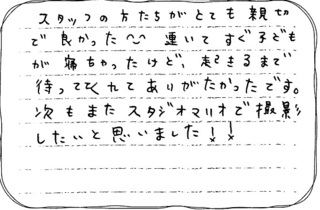 スタッフの方たちがとても親切
で良かった^^ 着いてすぐ子ども
が寝ちゃったけど、起きるまで
待っててくれてありがたかったです。
次もまたスタジオマリオで撮影
したいと思いました!!